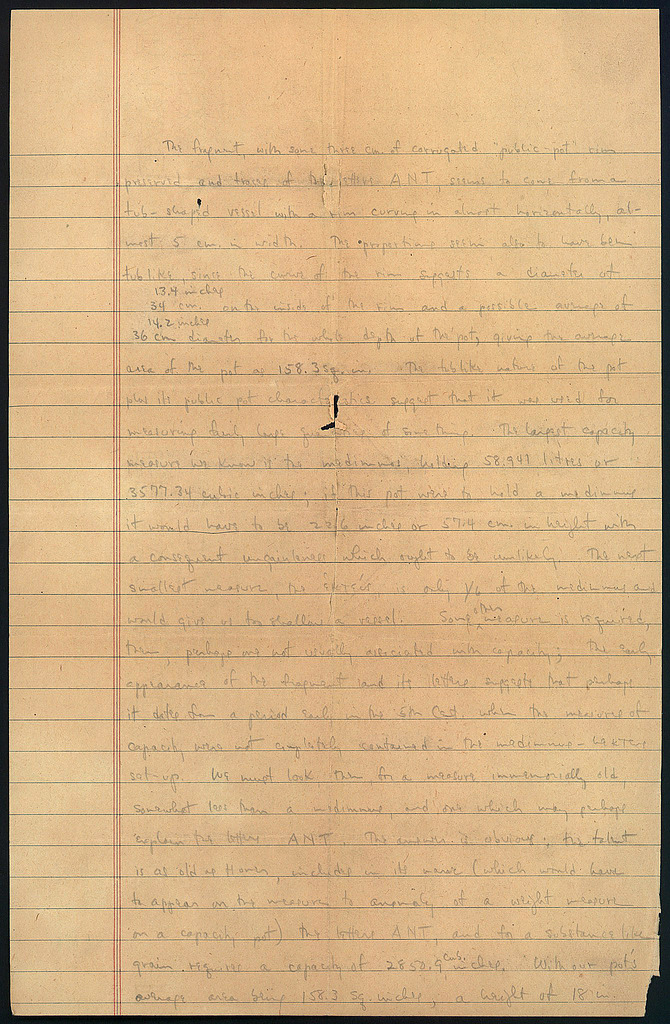 The fragment, with some three cm. of corrugated "public-pot" rim
preserved and traces of the letters ANT, seems to come from a
tub-shaped vessel with a rim curving in almost horizontally, al-
most 5 cm. in width. The proportions seem also to have been
tublike, since the curve of the rim suggests a diameter of
13.4 inches
34 cm. on the inside of the rim and a possible average of
14.2 inches
36 cm diameter for the whole depth of the pot, giving the average
area of the pot as 158.3 sq. in. The tublike nature of the pot
plus its public pot characteristics suggest that it was used for
measuring fairly large quantities of something. The largest capacity
measure we know is the medimnus, holding 58.941 litres or
3577.34 cubic inches; if this pot were to hold a medimnus
it would have to be 22.6 inches or 57.4 cm. in height with
a consequent ungainliness which ought to be unlikely. The next
smallest measure, the is only 1/6 of the medimnus and
would give us too shallow a vessel. Some other measure is required,
then, perhaps one not usually associated with capacity; the early
appearance of the fragment and its letters suggests that perhaps
it dates from a period early in the 5th Cent. when the measures of
capacity were not completely contained in the medimnus-
set-up. We must look, then, for a measure immemorially old,
somewhat less than a medimnus, and one which may perhaps
explain the letters ANT. The answer is obvious; the talent
is as old as Homer, includes in its name (which would have
to appear on the measure to of a weight measure
on a capacity pot) the letters ANT, and for a substance like
grain requires a capacity of 2850.9 cub. inches. With our pot's
average area being 158.3 sq. inches, a height of 18 in.